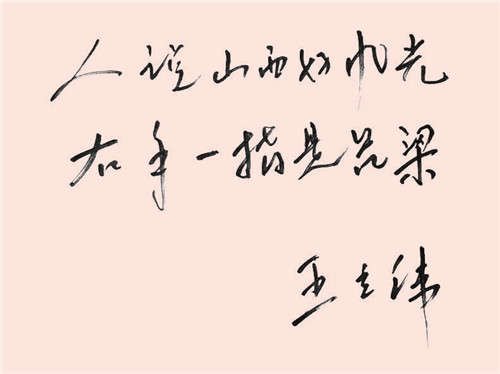 人说山西好风光
右手一指是吕梁
王立伟